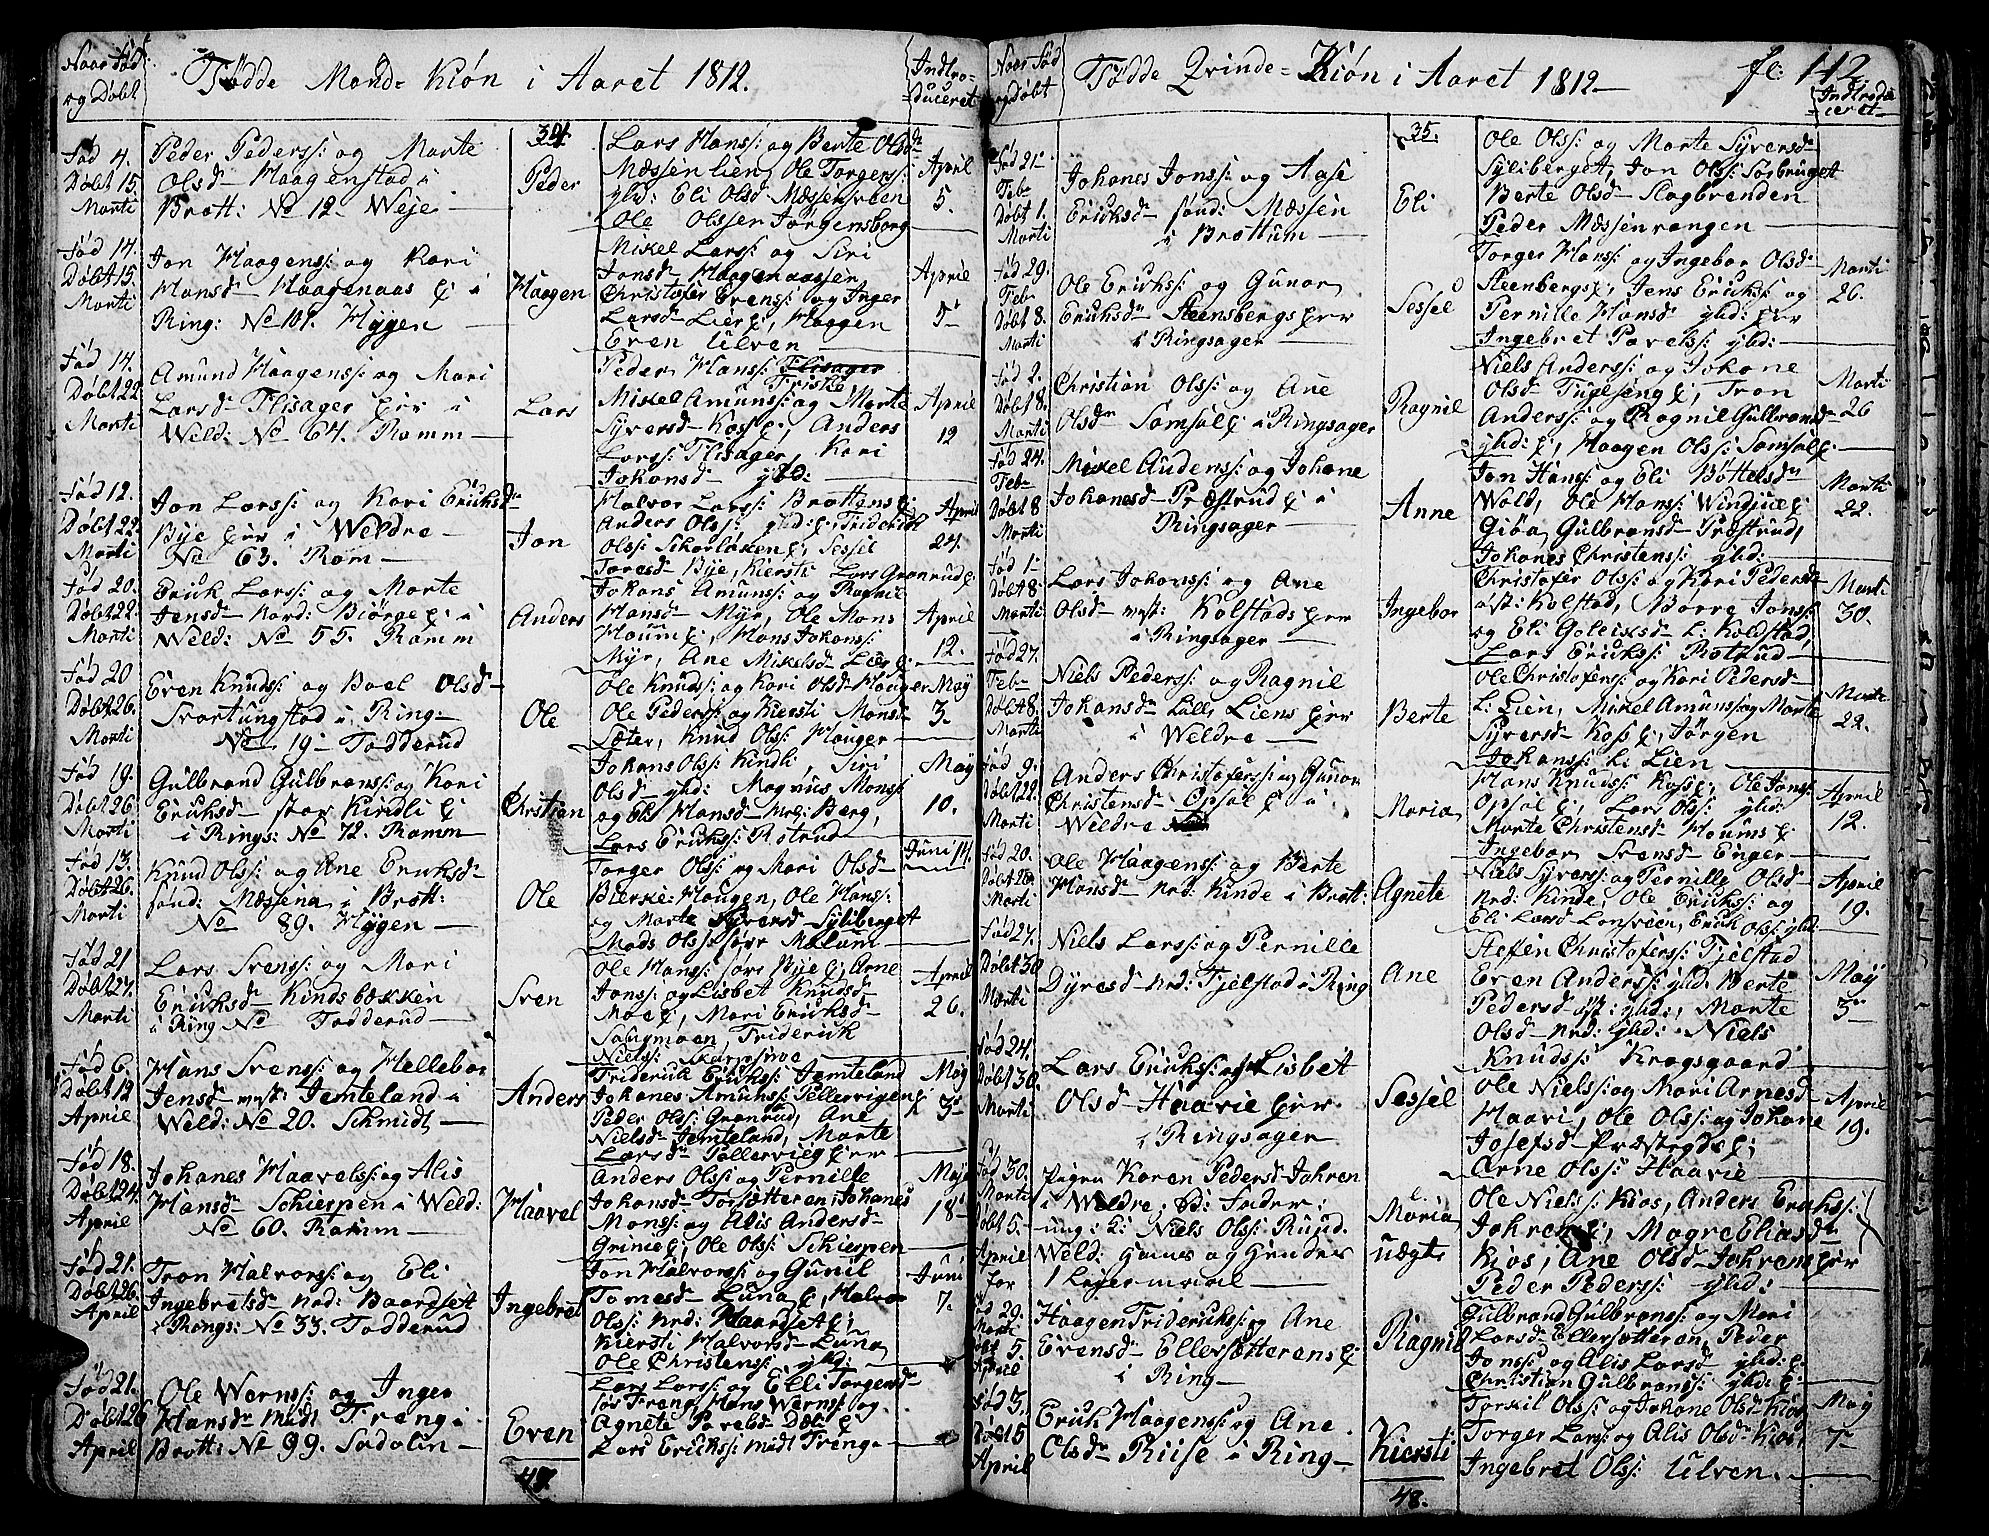 Naar Fød
og Døbt
Fødde Mand-Kiøn i Aaret 1812.
Indtro-
duceret
34.
Fød 4.
Døbt 15.
Marti
Peder Peders: og Marte
Olsd- Haagenstad i
Brott: No 12- Weje
Peder
Lars Hans: og Berte Olsd
Mæssenlien, Ole Torgers:
yld: Eli Olsd Mæssenveen
Ole Olssen Jørgensborg
April
5.
Fød 14.
Døbt 15.
Marti
Jon Haagens: og Kari
Hansd- Haagenaas E i
Ring: No 101. Hygen
Haagen
Mikel Lars: og Siri
Jonsd- Haagenaasen
Christofer Evens: og Inger
Larsd- Lier E, Haagen
Even Ulven
April
5-
Fød 14.
Døbt 22
Marti
Amund Haagens: og Mari
Larsd- Flisager Eier i
Weld: No 64. Ramm
Lars
Peder Hans: Flisager
Friske
Mikel Amuns: og Marte
Syversd- Koss E, Anders
Lars: Flisager, Kari
Johansd- yld:
April
12
Fød 12.
Døbt 22.
Marti
Jon Lars: og Kari Eriksd-
Bye Eier i Weldre
No 63. Ram
Jon
Halvor Lars: Brottens E
Anders Ols: yld: E, Friderich
Ols: Skarløken E, Sessel
Toresd- Bye, Kiersti Lars Granrud E
April
24.
Fød 20.
Døbt 22.
Marti
Erik Lars: og Marte
Jensd- Nord: Biørge E: i
Weld: No 55. Ramm
Anders
Johans Amuns: og Ragnil
Hansd- Myr, Ole Mons
Houm E, Hans Johans:
Myr, Ane Mikelsd- Lier E
April
12.
Fød 20
Døbt 26.
Marti
Even Knuds: og Boel Olsd-
Svartungstad i Ring:
No 19- Todderud
Ole
Ole Knuds: og Kari Olsd- Hauger
Ole Peders: og Kiersti Monsd-
Sæter, Knud Ols: Hauger
May
3.
Fød 19.
Døbt 26.
Marti
Gulbrand Gulbrans: og Kari
Eriksd- stor Kindli E
i Rings: No 72. Ramm
Christian
Johans Ols: Kindli, Siri
Olsd- yld: Magnus Mons:
og Eli Hansd- Berg,
Lars Eriks: Rotrud
May
10.
Fød 13.
Døbt 26.
Marti
Knud Ols: og Ane Eriksd-
sønd: Mæssena i Brott:
No 89. Hygen
Ole
Torger Ols: og Mari Olsd-
Bierke: Haugen, Ole Hans:
og Marte Syversd- Syliberget
Mads Ols: Mælum
Juni 14.
Fød 21
Døbt 27.
Marti
Lars Svens: og Mari
Eriksd- Kindsbækken
i Ring No Todderud
Sven
Ole Hans: Bye E, Arne
Jons: og Lisbet Knudsd-
Moe E, Mari Eriksd-
Saugmoen, Friderik
Niels: Skarpsnoe
April
26.
Fød 6.
Døbt 12
April
Hans Svens: og Hellebor
Jensd- mst: Jemteland i
Weld: No 20. Schmidt
Anders
Friderik Eriks: Jemteland
Johanes Amuns: Pellervigen E
Peder Ols: Granrud, Ane
Nielsd- Jemteland, Marte
Larsd- Pellervig Eier
May
3-
Fød 18.
Døbt 24.
April
Johanes Haavels: og Alis
Hansd- Schierpen i Weld:
No 60. Ramm
Haavel
Anders Ols: og Pernille
Johansd- Torsætteren, Johanes
Mons: og Alis Andersd-
Grinie E, Ole Ols: Schierpen
May
18-
Fød 21.
Døbt 26.
April
Tron Halvors: og Eli
Ingebretsd- nod: Baardset
i Rings: No 33. Todderud
Ingebret
Jon Halvors: og Gunil
Tomesd- Luna E, Halvor
Ols: nrd: Baardset E
Kiersti Halvorsd- Luna
Ole Christens: yld:
Juni
7.
Fød 21.
Døbt 26
April
Ole Werns: og Inger
Hansd- midt Freng i
Brott: No 99. Sadolin
Even
Lars Lars: og Elli Torgersd-
Freng, Hans Werns: og
Agnete Pavelsd- Dæli E
Lars Eriks: midt Freng
47.
Naar Fød
og Døbt
Fødde Qvinde-Kiøn i Aaret 1812
fc: 142.
Indtrodu
ceret
35.
Fød 21-
Feb-
Døbt 1.
Marti
Johanes Jons: og Aase
Eriksd- sønd: Mæssen
i Brottum
Eli
Ole Ols: og Marte Syversd-
Syliberget, Jon Ols: Sørbruget
Berte Olsd- Slagbrenden
Peder Mæssenvangen
Fød 29.
Feb-
Døbt 8.
Marti
Ole Eriks: og Gunor
Eriksd- Steensbergs Eier
i Ringsager
Sessel
Torger Hans: og Ingebor Olsd-
Steenbergs E, Jens Eriks: og
Pernille Hansd- yld: Eier
Ingebret Pavels: yld:
Marti
26.
Fød 2.
Døbt 8.
Marti
Christian Ols: og Ane
Olsd- Samsal E i Ringsager
Ragnil
Niels Anders: og Johane
Olsd- Fugelseng E, Tron
Anders: og Ragnil Gulbransd-
yld: E, Haagen Ols: Samsal E
Marti
26
Fød 24.
Feb-
Døbt 8
Marti
Mikel Anders: og Johane
Johanesd- Præstrud E i
Ringsager
Anne
Jon Hans: og Eli Bottelsd-
Wold, Ole Hans: Windjue E
Giøa Gulbransd- Trostrud,
Johanes Christens: yld:
Marti
22.
Fød 1-
Døbt 8.
Marti
Lars Johans: og Ane
Olsd- mst: Kolstads Eier
i Ringsager
Ingebor
Christofer Ols: og Kari Pedersd-
øst: Kolstad, Børre Jons:
og Eli Goleiksd- L: Koldstad,
Lars Eriks: Rotrud
Marti
30.
Fød 27.
Feb-
Døbt 8.
Marti
Niels Peders: og Ragnil
Johansd- Lille Liens Eier
i Weldre
Berte
Ole Christofers: og Kari Pedersd-
L: Lien, Mikel Amuns: og Marte
Syversd- Koss E, Jørgen
Johans: L: Lien
Marti
22.
Fød 9.
Døbt 22.
Marti
Anders Christofers: og Gunor
Christensd- Opsal E i
Weldre
Maria
Hans Knuds: Koss E, Ole Jons:
Opsal E, Lars Ols: yld:
Marte Christensd- Houms E
Ingebor Svensd- Enger
April
12.
Fød 20.
Døbt 26
Marti
Ole Haagens: og Berte
Hansd- nrd: Kinde i Brott:
Agnete
Niels Syvers: og Pernille Olsd-
nrd: Kinde, Ole Eriks: og
Eli Larsd- Lonsveen, Erik Ols: yld:
April
19.
Fød 27.
Døbt 30
Marti
Niels Lars: og Pernille
Dyresd- nrd: Fjelstad i Ring
Ane
Steffen Christofers: Fjelstad
Even Anders: yld: Berte
Pedersd- øst: yld: Marte
Olsd- nrd: yld: Niels
Knuds: Krogsgaard
May
3-
Fød 24.
Døbt 30.
Marti
Lars Eriks: og Lisbet
Olsd- Haavie Eier
i Ringsager
Sessel
Ole Niels: og Mari Arnesd-
Haavi, Ole Ols: og Johane
Josefsd- Præstegde E;
Arne Ols: Haavie
April
19.
Fød 30.
Marti
Døbt 5-
April
Pigen Karen Pedersd- Johren
i Weldre, Bd: Fader:
ung: k: Niels Ols: Ruud
Weld: Hannes og Hendes
1 Leyermaal
Maria
Uægte
Ole Niels: Kios, Anders Eriks:
Johren E, Magre Eliasd-
Kios, Ane Olsd- Johrem Eier
Peder Peders: yld:
Fød 29.
Marti
Døbt 5.
April
Haagen Frideriks: og Ane
Evensd- Ellersætterens E
i Ring
Ragnil
Gulbrand Gulbrans: og Mari
Larsd- Ellersætteren, Peder
Jons: og Alis Larsd- yld: E
Christian Gulbrans: yld: E
Fød 3.
Døbt 5
April
Erik Haagens: og Ane
Olsd- Riise i Ring
Kiersti
Torkil Ols: og Johane Olsd- Kios
Torger Lars: og Alis Olsd- Kios,
Ingebret Ols: Ulven.
May
7-
48.